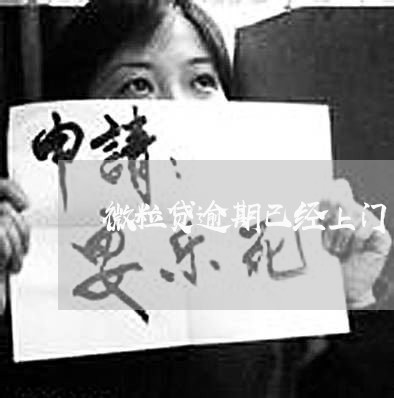 申請：
微粒贷逾期已经上门
安乐死